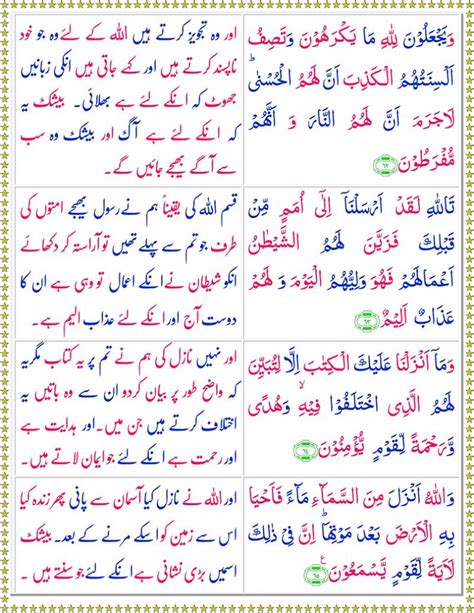 وَيَجْعَلُوْنَ لِلّٰهِ مَا يَكْرَهُوْنَ وَتَصِفُ
اَلْسِنَتُهُمُ الْكَذِبَ اَنَّ لَهُمُ الْحُسْنٰىؕ
لَاجَرَمَ اَنَّ لَهُمُ النَّارَ وَ اَنَّهُمْ
مُّفْرَطُوْنَ ﴿٦٢﴾
اور وہ تجویز کرتے ہیں اللہ کے لئے جو خود
ناپسند کرتے ہیں اور کہے جاتی ہیں انکی زبانیں
جھوٹ کہ انکے لئے ہے بھلائی۔ بیشک یہ
کہ انکے لئے ہے آگ اور بیشک وہ سب
سے آگے بھیجے جائیں گے۔
تَاللّٰهِ لَقَدْ اَرْسَلْنَاۤ اِلٰٓى اُمَمٍ مِّنْ
قَبْلِكَ فَزَيَّنَ لَهُمُ الشَّيْطٰنُ
اَعْمَالَهُمْ فَهُوَ وَلِيُّهُمُ الْيَوْمَ وَ لَهُمْ
عَذَابٌ اَلِيْمٌ ﴿٦٣﴾
قسم اللہ کی یقیناً ہم نے رسول بھیجے امتوں کی
طرف جو تم سے پہلے تھیں تو آراستہ کر دکھائے
انکو شیطان نے انکے اعمال تو وہی ہے ان کا
دوست آج اور انکے لئے عذاب الیم ہے۔
وَمَاۤ اَنْزَلْنَا عَلَيْكَ الْكِتٰبَ اِلَّا لِتُبَيِّنَ
لَهُمُ الَّذِى اخْتَلَفُوْا فِيْهِۙ وَهُدًى
وَّرَحْمَةً لِّقَوْمٍ يُّؤْمِنُوْنَ ﴿٦٤﴾
اور نہیں نازل کی ہم نے تم پر یہ کتاب مگر یہ
کہ واضح طور پر بیان کردو ان سے وہ باتیں یہ
اختلاف کرتے ہیں جن میں۔ اور ہدایت ہے
اور رحمت ہے انکے لئے جو ایمان لاتے ہیں۔
وَاللّٰهُ اَنْزَلَ مِنَ السَّمَآءِ مَآءً فَاَحْيَا
بِهِ الْاَرْضَ بَعْدَ مَوْتِهَاؕ اِنَّ فِىْ ذٰلِكَ
لَاٰيَةً لِّقَوْمٍ يَّسْمَعُوْنَ ﴿٦٥﴾ ع
اور اللہ نے نازل کیا آسمان سے پانی پھر زندہ کیا
اس سے زمین کو اسکے مرنے کے بعد۔ بیشک
اسمیں بڑی نشانی ہے انکے لئے جو سنتے ہیں ۔